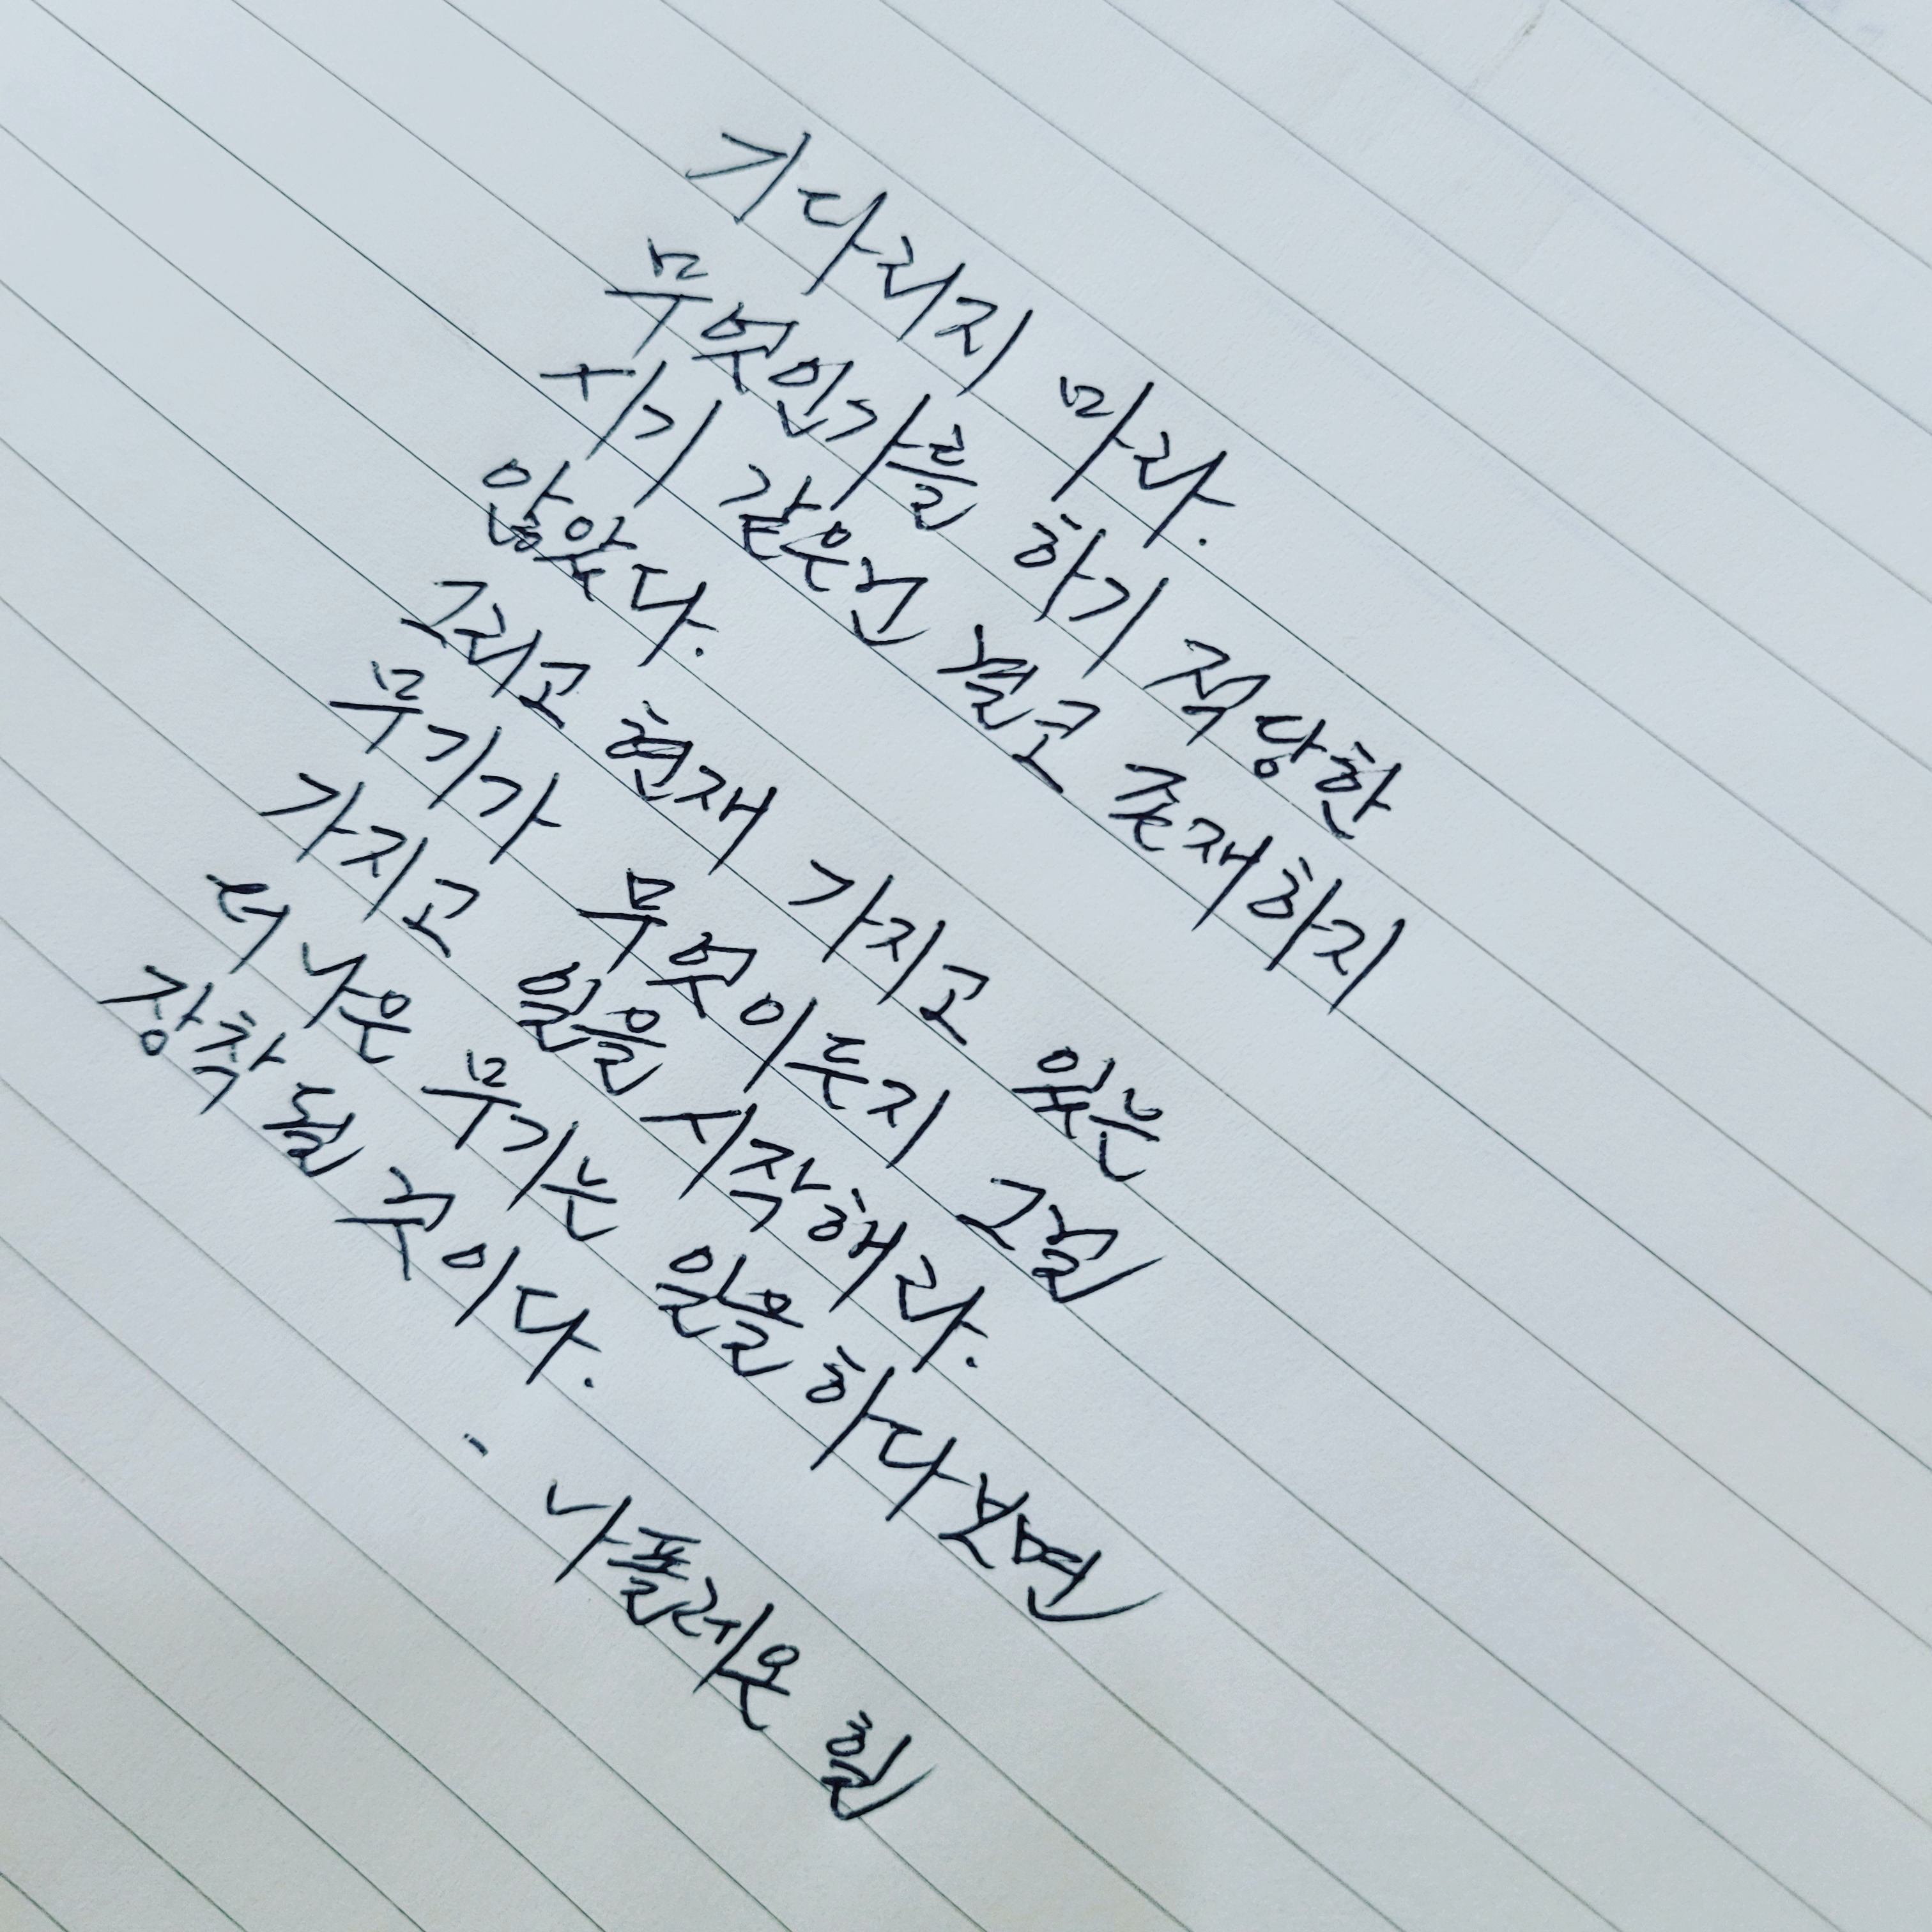 기다리지 마라.
무엇인가를 하기 적당한
시기 같은건 결코 존재하지
않았다.
그리고 현재 가지고 있는
무기가 무엇이든지 그걸
가지고 일을 시작해라.
더 나은 무기는 일을 하다보면
장착 될 것이다.
- 나폴레온 힐